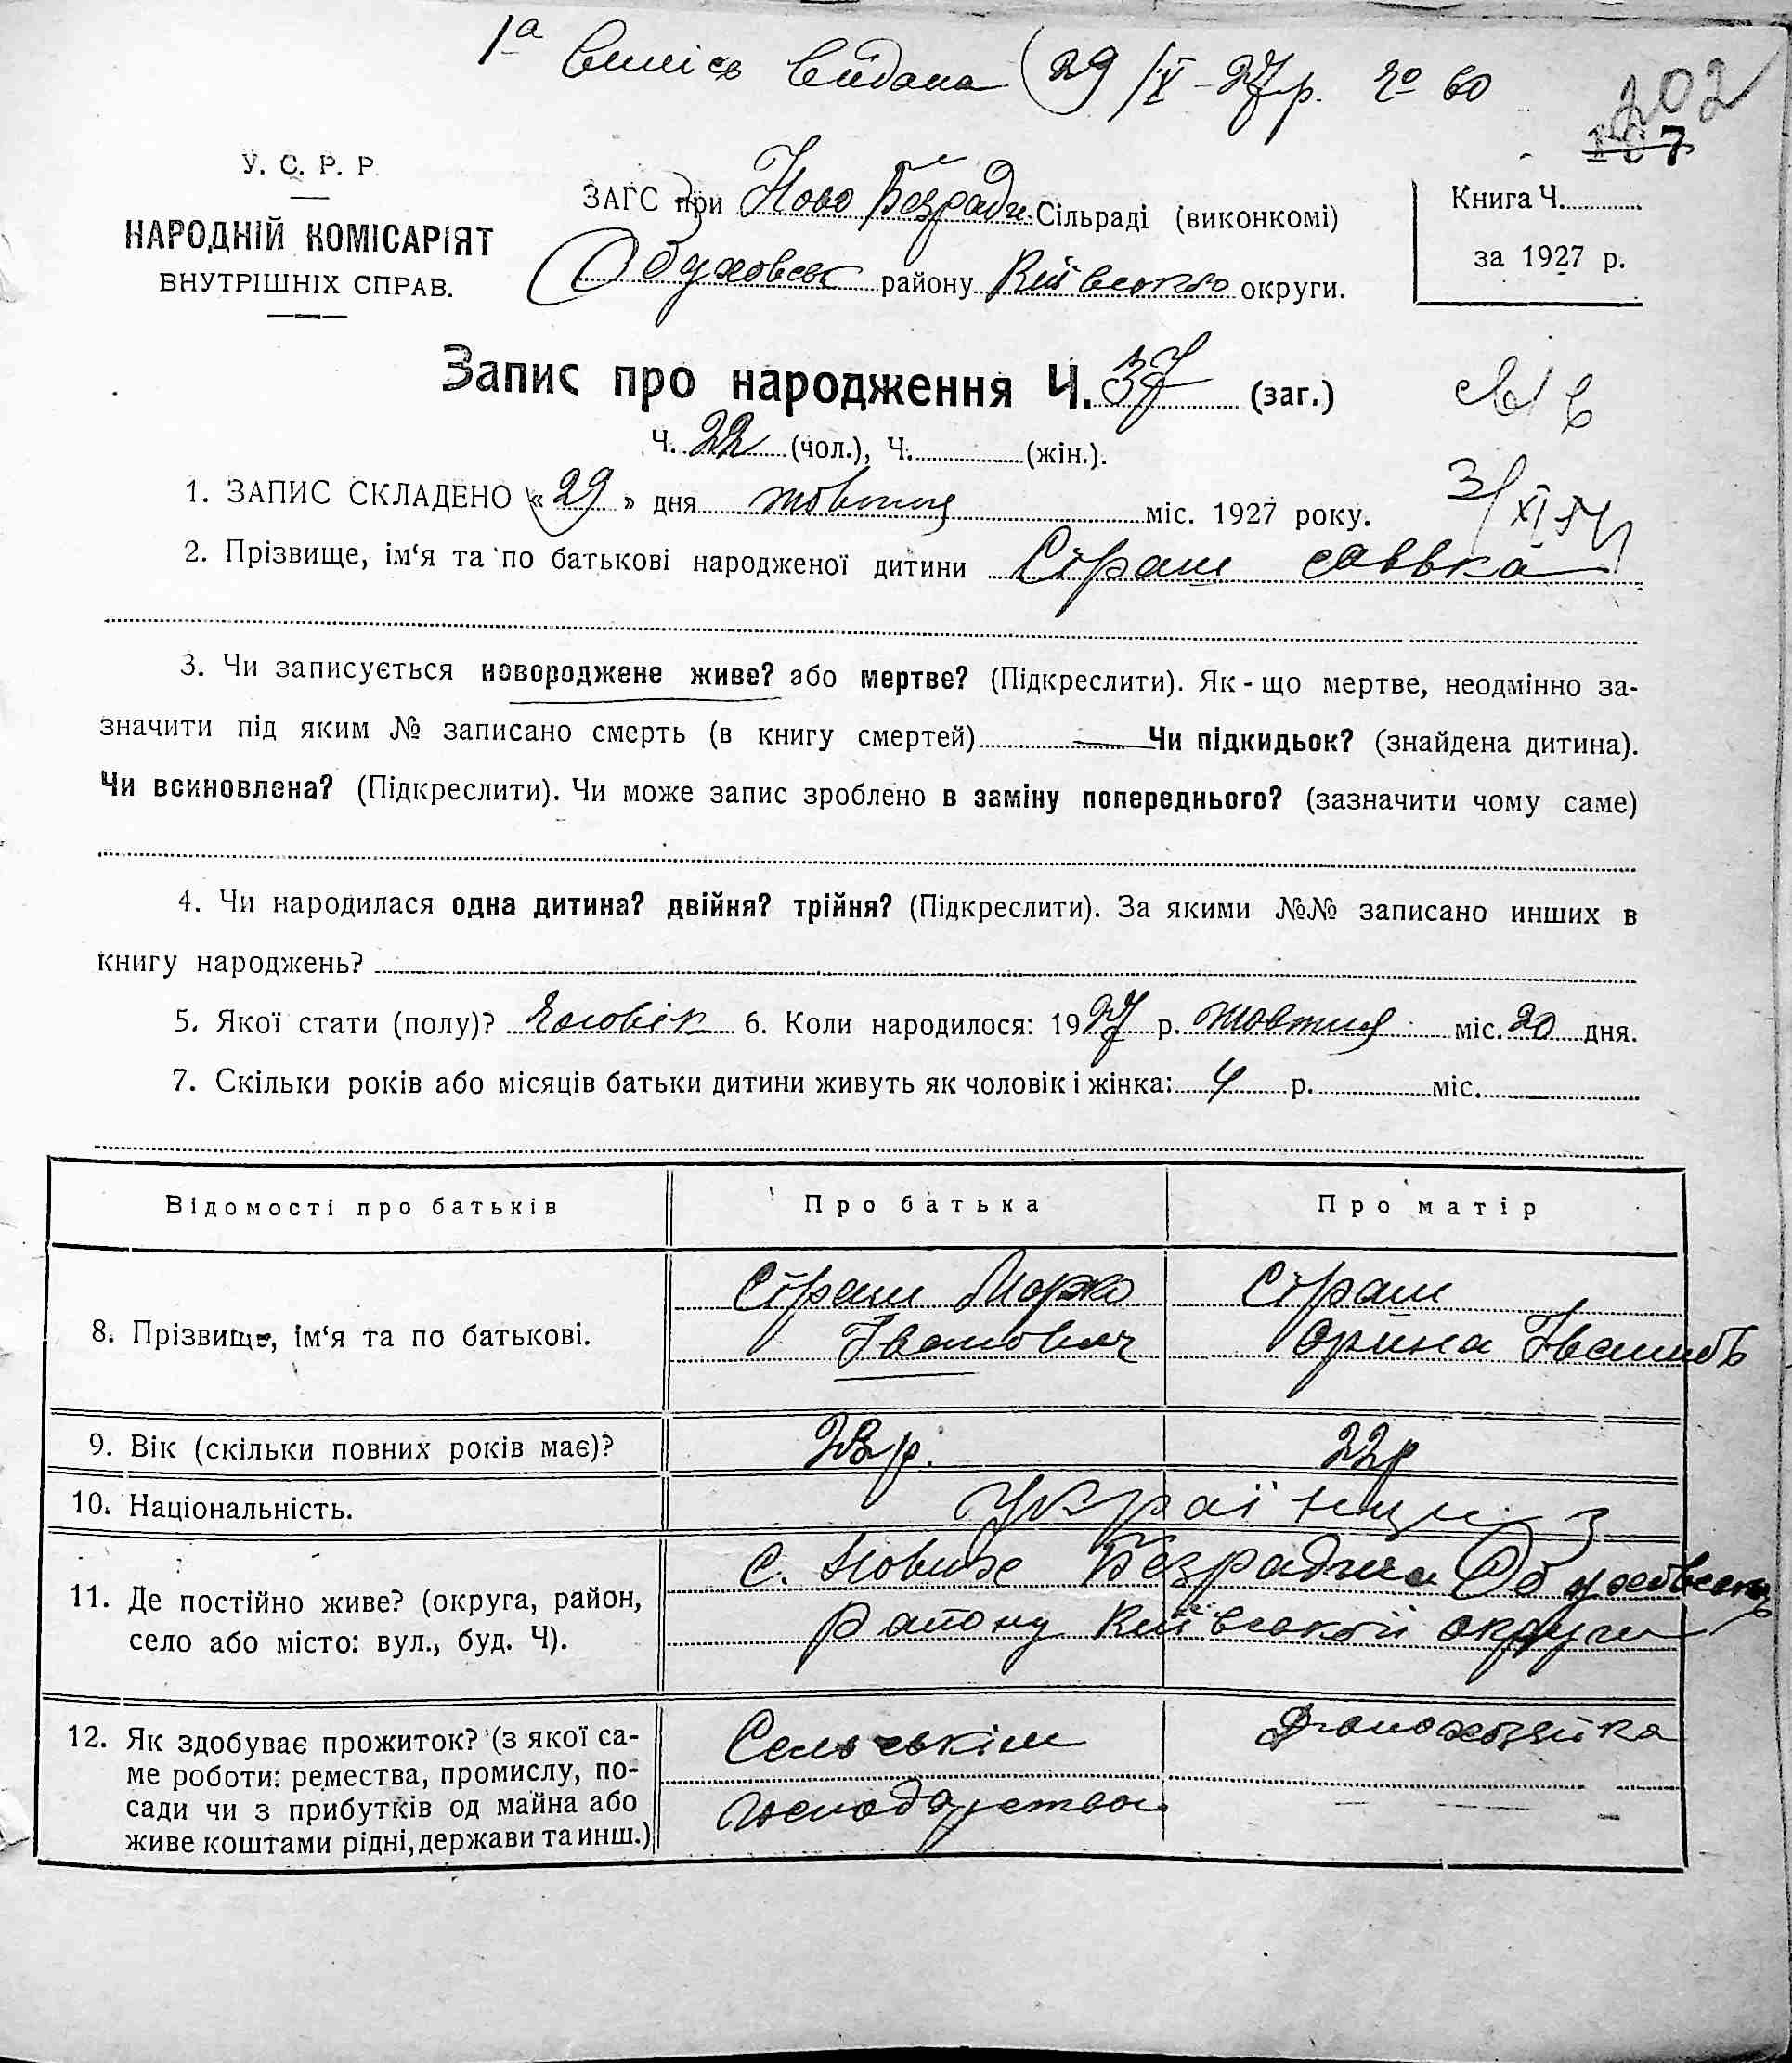 1а випись видана 29/X-27р. № 60
202
У. С. Р. Р.
НАРОДНІЙ КОМІСАРІЯТ
ВНУТРІШНІХ СПРАВ.
ЗАГС при Ново Безрадич. Сільраді (виконкомі)
Обуховськ району Київської округи.
Книга Ч.
за 1927 р.
Запис про народження Ч. 37 (заг.)
Ч. 22 (чол.), Ч. (жін.).
1. ЗАПИС СКЛАДЕНО «29» дня жовтня міс. 1927 року.
2. Прізвище, ім‘я та по батькові народженої дитини Страш Саввка
3. Чи записується новороджене живе? або мертве? (Підкреслити). Як-що мертве, неодмінно за-
значити під яким № записано смерть (в книгу смертей) Чи підкидьок? (знайдена дитина).
Чи всиновлена? (Підкреслити). Чи може запис зроблено в заміну попереднього? (зазначити чому саме)
4. Чи народилася одна дитина? двійня? трійня? (Підкреслити). За якими №№ записано инших в
книгу народжень?
5. Якої стати (полу)? Чоловік 6. Коли народилося: 1927 р. жовтня міс. 20 дня.
7. Скільки років або місяців батьки дитини живуть як чоловік і жінка: 4 р. міс.
Відомості про батьків Про батька Про матір
8. Прізвище, ім‘я та по батькові. Страш Марко Страш
Іванович Орина Іванивъ
9. Вік (скільки повних років має)? 23р. 22р
10. Національність. Українци
11. Де постійно живе? (округа, район,
село або місто: вул., буд. Ч).
с. Нових Безрадичи Обуховського
району Київської округи
12. Як здобуває прожиток? (з якої са-
ме роботи: ремества, промислу, по-
сади чи з прибутків од майна або
живе коштами рідні, держави та инш.)
Сельськім Домохозяйка
господарством